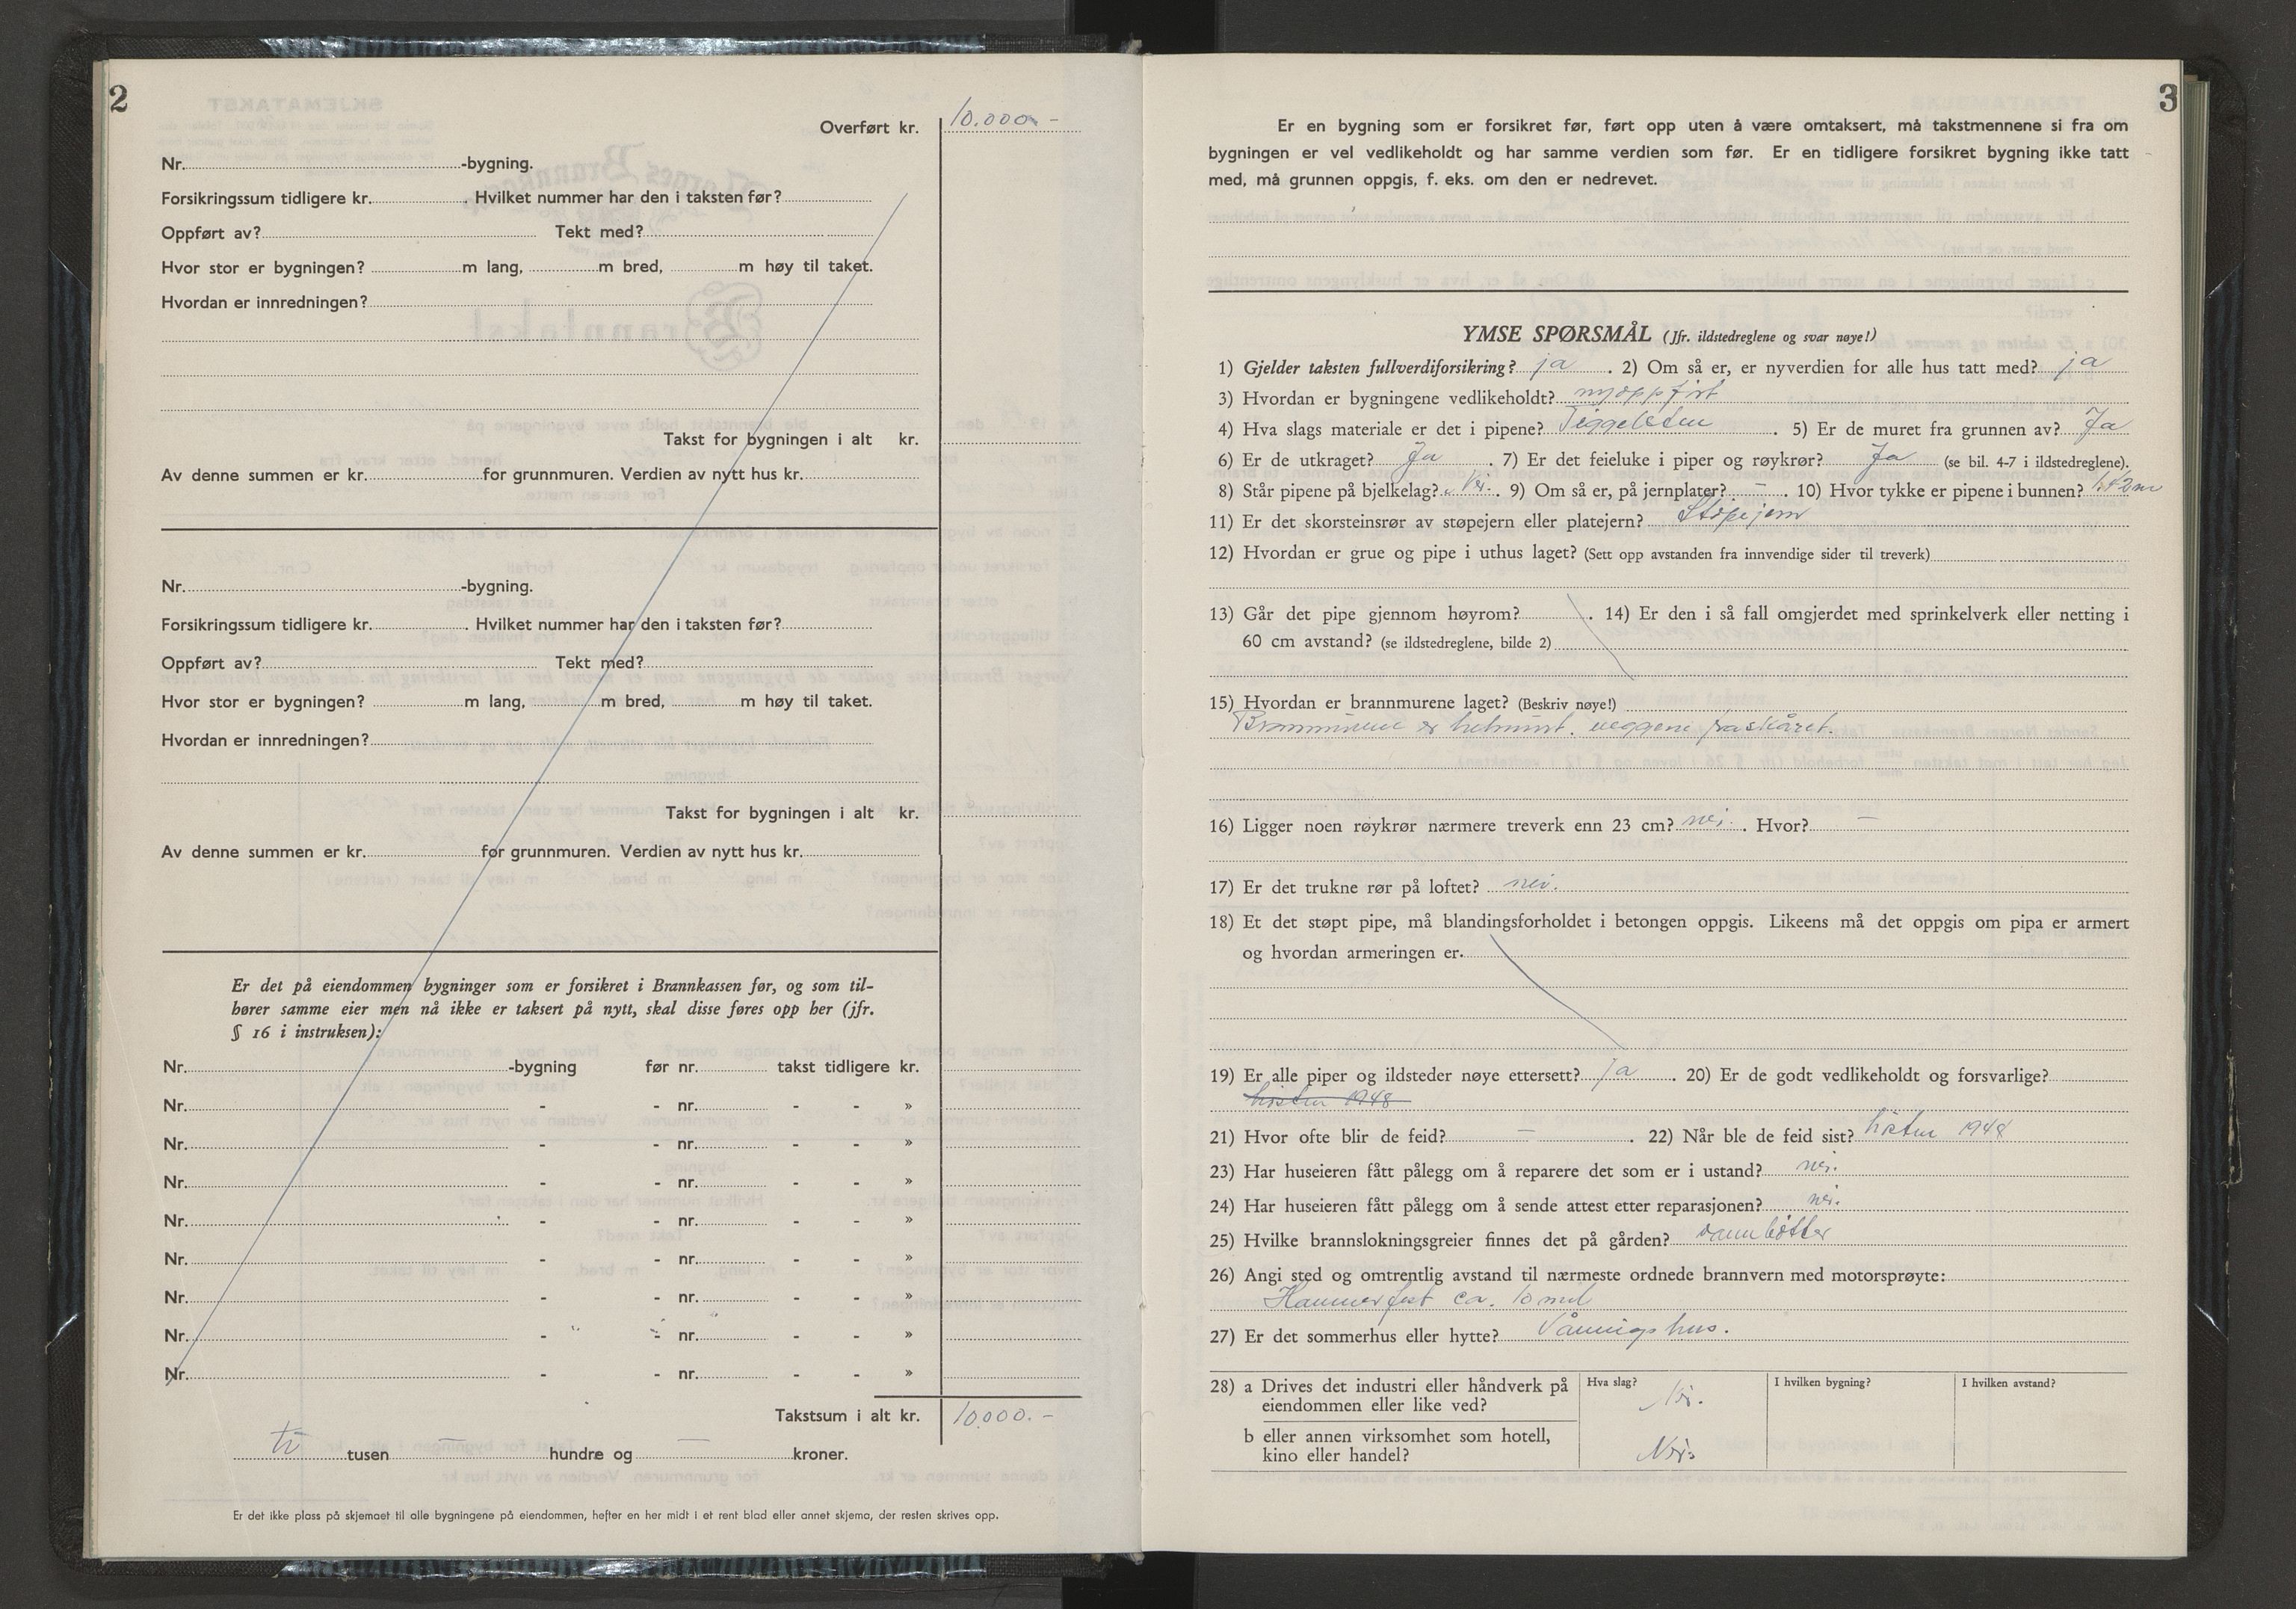 2
Overført kr. 10.000.-
Nr. -bygning.
Forsikringssum tidligere kr. . Hvilket nummer har den i taksten før?
Oppført av? Tekt med?
Hvor stor er bygningen? m lang, m bred, m høy til taket.
Hvordan er innredningen?
Takst for bygningen i alt kr.
Av denne summen er kr. for grunnmuren. Verdien av nytt hus kr.
Nr. -bygning.
Forsikringssum tidligere kr. . Hvilket nummer har den i taksten før?
Oppført av? Tekt med?
Hvor stor er bygningen? m lang, m bred, m høy til taket.
Hvordan er innredningen?
Takst for bygningen i alt kr.
Av denne summen er kr. for grunnmuren. Verdien av nytt hus kr.
Er det på eiendommen bygninger som er forsikret i Brannkassen før, og som til-
hører samme eier men nå ikke er taksert på nytt, skal disse føres opp her (jfr.
§ 16 i instruksen):
Nr. -bygning før nr. takst tidligere kr.
Nr. - - nr. - - »
Nr. - - nr. - - »
Nr. - - nr. - - »
Nr. - - nr. - - »
Nr. - - nr. - - »
Nr. - - nr. - - »
Nr. - - nr. - - »
Nr. - - nr. - - »
Takstsum i alt kr. 10.000.-
ti tusen — hundre og — kroner.
Er det ikke plass på skjemaet til alle bygningene på eiendommen, hefter en her midt i et rent blad eller annet skjema, der resten skrives opp.
3
Er en bygning som er forsikret før, ført opp uten å være omtaksert, må takstmennene si fra om
bygningen er vel vedlikeholdt og har samme verdien som før. Er en tidligere forsikret bygning ikke tatt
med, må grunnen oppgis, f. eks. om den er nedrevet.
YMSE SPØRSMÅL (Jfr. ildstedreglene og svar nøye!)
1) Gjelder taksten fullverdiforsikring? ja . 2) Om så er, er nyverdien for alle hus tatt med? ja
3) Hvordan er bygningene vedlikeholdt? nyoppført
4) Hva slags materiale er det i pipene? Teggelsten . 5) Er de muret fra grunnen av? Ja
6) Er de utkraget? Ja . 7) Er det feieluke i piper og røykrør? Ja (se bil. 4-7 i ildstedreglene).
8) Står pipene på bjelkelag? Nei. . 9) Om så er, på jernplater? — . 10) Hvor tykke er pipene i bunnen?
11) Er det skorsteinsrør av støpejern eller platejern? Støpejern
12) Hvordan er grue og pipe i uthus laget? (Sett opp avstanden fra innvendige sider til treverk)
13) Går det pipe gjennom høyrom? . 14) Er den i så fall omgjerdet med sprinkelverk eller netting i
60 cm avstand? (se ildstedreglene, bilde 2)
15) Hvordan er brannmurene laget? (Beskriv nøye!)
Brannmurene er helmurt. veggene fraskåret.
16) Ligger noen røykrør nærmere treverk enn 23 cm? nei. . Hvor? —
17) Er det trukne rør på loftet? nei.
18) Et det støpt pipe, må blandingsforholdet i betongen oppgis. Likeens må det oppgis om pipa er armert
og hvordan armeringen er.
19) Er alle piper og ildsteder nøye ettersett? Ja . 20) Er de godt vedlikeholdt og forsvarlige?
høsten 1948
21) Hvor ofte blir de feid? — . 22) Når ble de feid sist? høsten 1948
23) Har huseieren fått pålegg om å reparere det som er i ustand? nei.
24) Har huseieren fått pålegg om å sende attest etter reparasjonen? nei.
25) Hvilke brannslokningsgreier finnes det på gården? vannbøtter
26) Angi sted og omtrentlig avstand til nærmeste ordnede brannvern med motorsprøyte:
Hammerfest ca. 10 mil
27) Er det sommerhus eller hytte? Våningshus.
28) a Drives det industri eller håndverk på
eiendommen eller like ved?
Hva slag? Nei.
I hvilken bygning?
I hvilken avstand?
b eller annen virksomhet som hotell,
kino eller handel?
Nei.